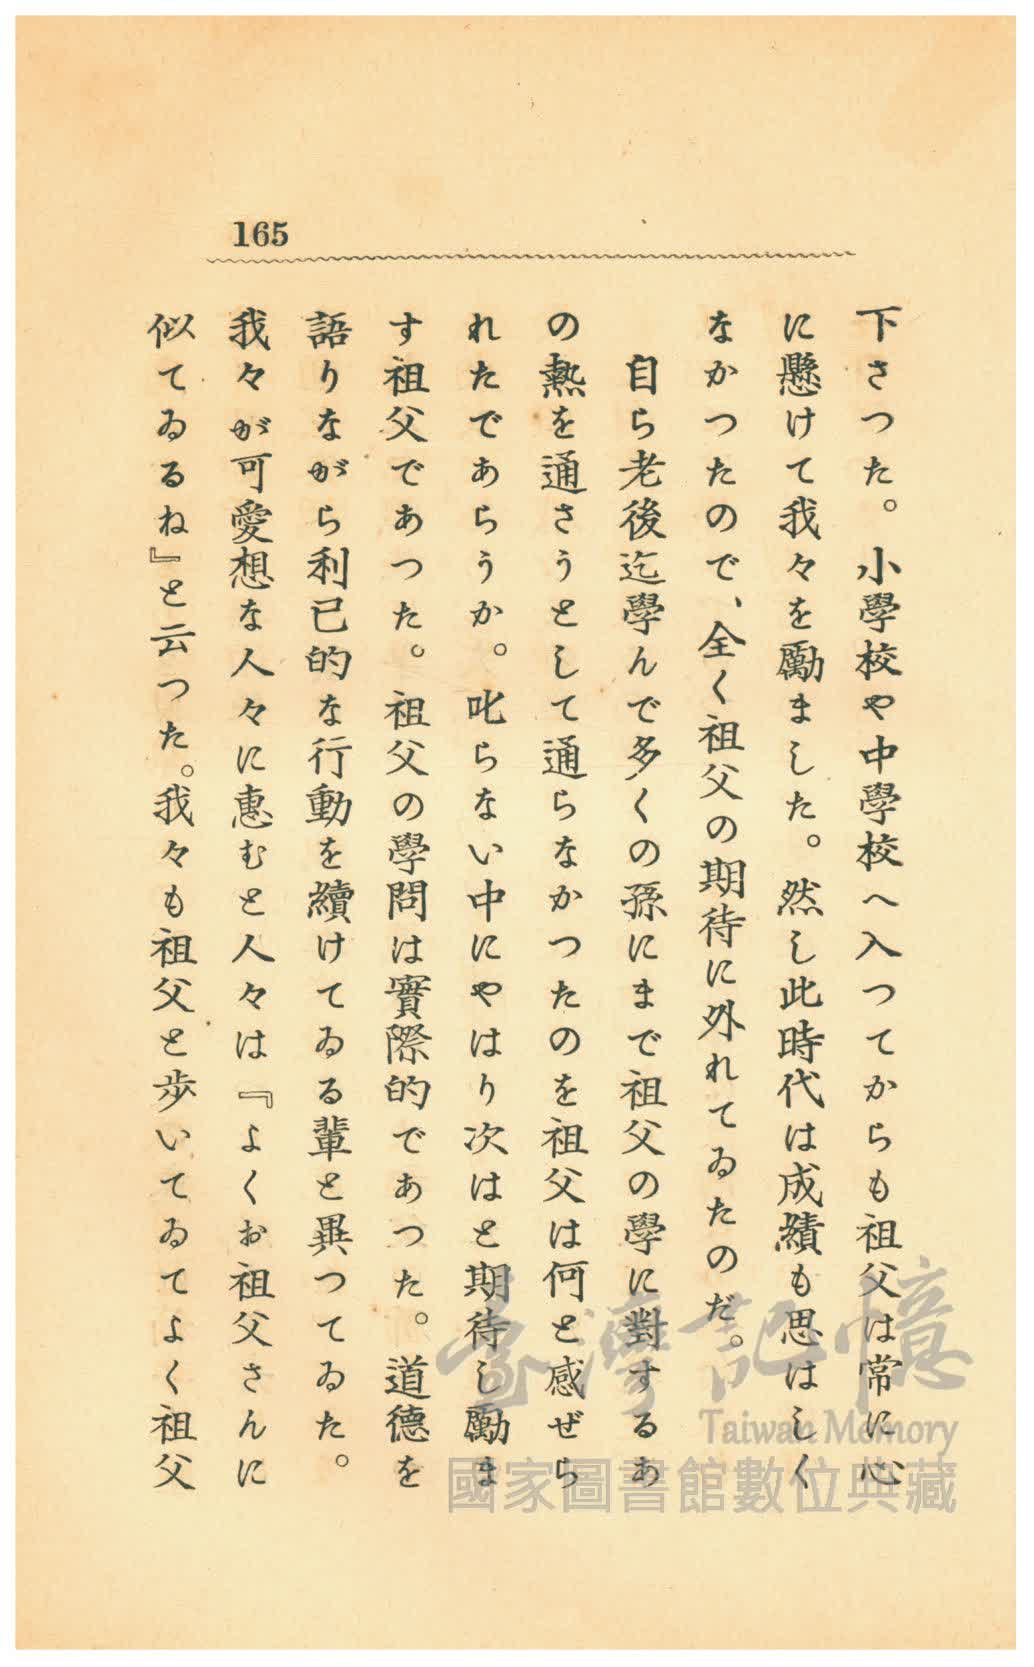 165
下さつた。小學校や中學校へ入つてからも祖父は常に心
に懸けて我々を勵ました。然し此時代は成績も思はしく
なかつたので、全く祖父の期待に外れてゐたのだ。
自ら老後迄學んで多くの孫にまで祖父の學に對するあ
の熱を通さうとして通らなかつたのを祖父は何と感ぜら
れたであらうか。叱らない中にやはり次はと期待し勵ま
す祖父であつた。祖父の學問は實際的であつた。道德を
語りながら利己的な行動を續けてゐる輩と異つてゐた。
我々が可愛想な人々に惠むと人々は『よくお祖父さんに
似てゐるね』と云つた。我々も祖父と步いてゐてよく祖父
臺灣記憶
Taiwan Memory
國家圖書館數位典藏